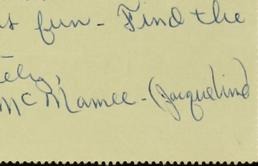 t fun - Find the
tely,
McNamee - (Jacqueline)